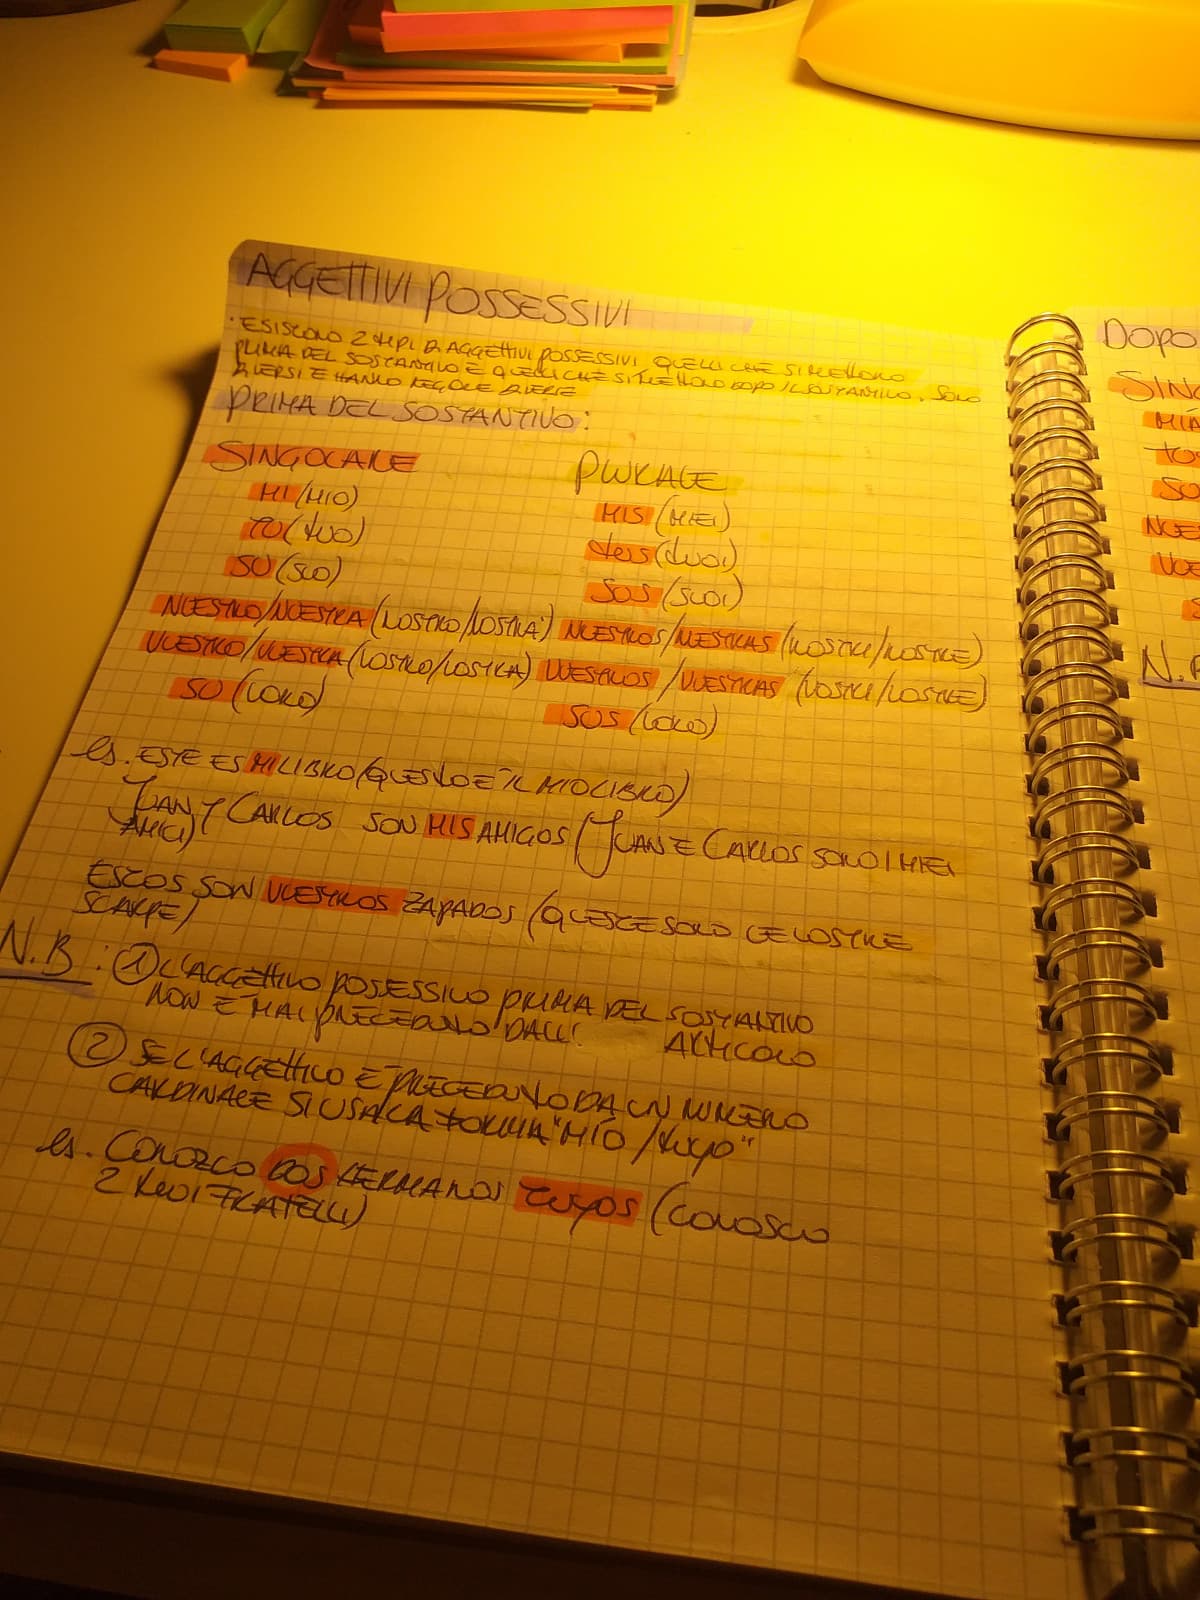 AGGETTIVI POSSESSIVI
• ESISTONO 2 tipi DI AGGETTIVI POSSESSIVI QUELLI CHE SI METTONO
PRIMA DEL SOSTANTIVO E QUELLI CHE SI METTONO DOPO IL SOSTANTIVO. SONO
DIVERSI E HANNO REGOLE DIVERSE
PRIMA DEL SOSTANTIVO:
SINGOLARE
MI (MIO)
TU (tuo)
SU (SUO)
NUESTRO/NUESTRA (NOSTRO/NOSTRA)
VUESTRO/VUESTRA (VOSTRO/VOSTRA)
SU (LORO)
PLURALE
MIS (MIEI)
tus (tuoi)
SUS (SUOI)
NUESTROS/NUESTRAS (NOSTRI/NOSTRE)
VUESTROS/VUESTRAS (VOSTRI/VOSTRE)
SUS (LORO)
es. ESTE ES MI LIBRO (QUESTO È IL MIO LIBRO)
JUAN Y CARLOS SON MIS AMIGOS (JUAN E CARLOS SONO I MIEI
AMICI)
ESTOS SON VUESTROS ZAPADOS (QUESTE SONO LE VOSTRE
SCARPE)
N.B: ① L'AGGETTIVO POSSESSIVO PRIMA DEL SOSTANTIVO
NON È MAI PRECEDUTO DALL' ARTICOLO
② SE L'AGGETTIVO È PRECEDUTO DA UN NUMERO
CARDINALE SI USA LA FORMA "MÍO/tuyo"
es. CONOZCO DOS HERMANOS TUYOS (CONOSCO
2 tuoi FRATELLI)
DOPO
SING
MIA
SU
N.B